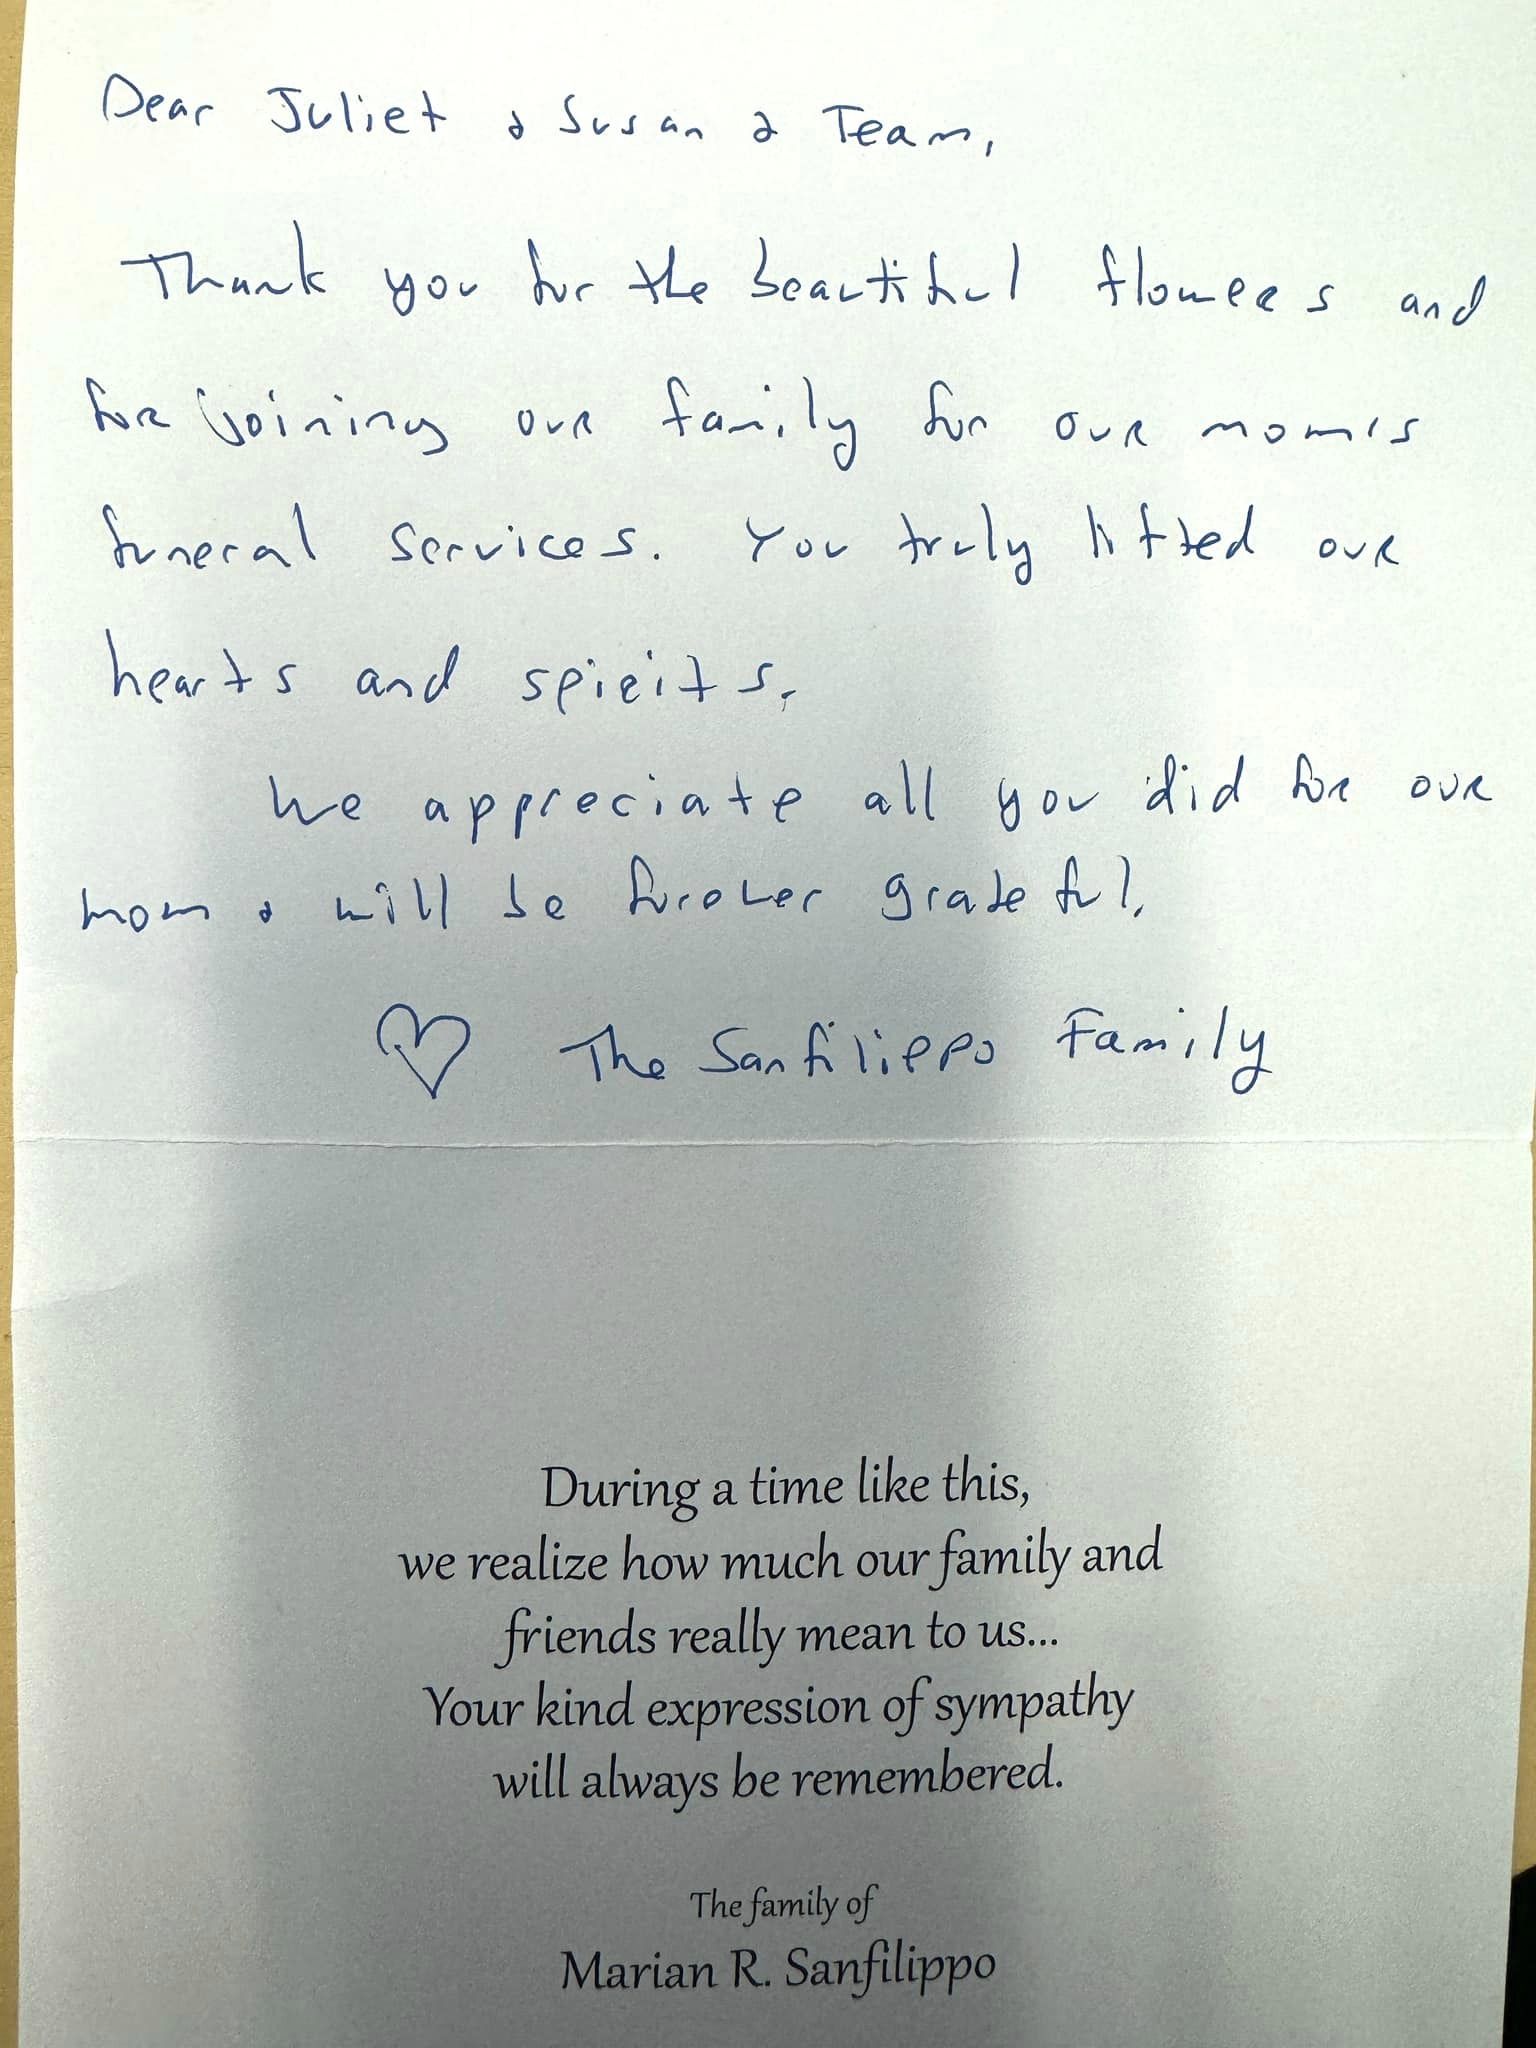 Dear Juliet & Susan & Team,
Thank you for the beautiful flowers and
for joining our family for our mom's
funeral services. You truly lifted our
hearts and spirits.
We appreciate all you did for our
mom & will be forever grateful.
♡ The Sanfilippo Family
During a time like this,
we realize how much our family and
friends really mean to us...
Your kind expression of sympathy
will always be remembered.
The family of
Marian R. Sanfilippo